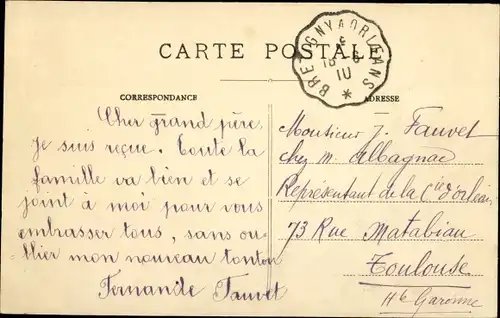 CARTE POSTALE
BRETIGNY A ORLEANS
18 - 8
10
CORRESPONDANCE
ADRESSE
Cher grand père,
Je suis reçue. Toute la
famille va bien et se
joint à moi pour vous
embrasser tous, sans ou-
blier mon nouveau tonton
Fernande Fauvet
Monsieur J. Fauvet
chez M. Albagnac
Représentant de la Cie d'Orléans
73 Rue Matabiau
Toulouse
Hte Garonne